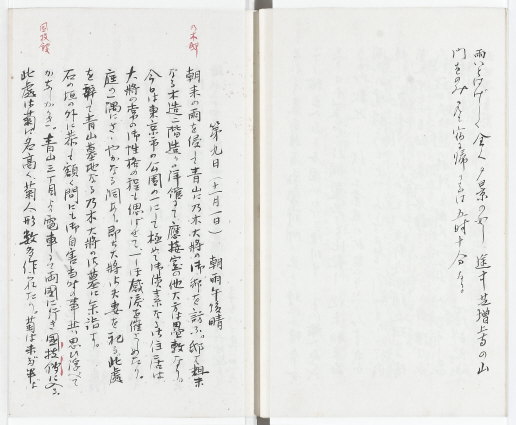 雨いよいよはげしく全く夕景の如し途中芝増上寺の山
門をのみ見て宿に帰りしは五時十分なりき
第九日（十一月一日）　朝雨午後晴
乃木邸
朝来の雨を侵して青山に乃木大将の御邸を訪ふ。邸は粗末
なる木造二階造りの洋館にて応接室の他大方は畳敷なり。
今日は東京市の公園の一にして極めて御質素なる御住居は
大将の常の御性格の程も思はせて、一しほ感涙を催さしめたり。
庭の一隅にささやかなる祠あり即ち大将御夫妻を祀る此處
を辞して青山墓地なる乃木大将の御墓に参詣す。
石の垣の外に恭しく額く間にも御自害当時の事共思ひ浮べて
かしこかりき。青山三丁目より電車にて両国に行き国技館に入る。
国技館
此處は菊に名高く、菊人形数多作られたり。菊は未だ半ば